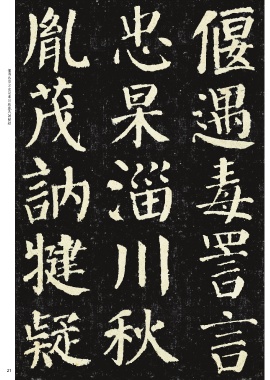 偃遇毒詈言
忠杲淄川秋
胤茂訥犍疑
21